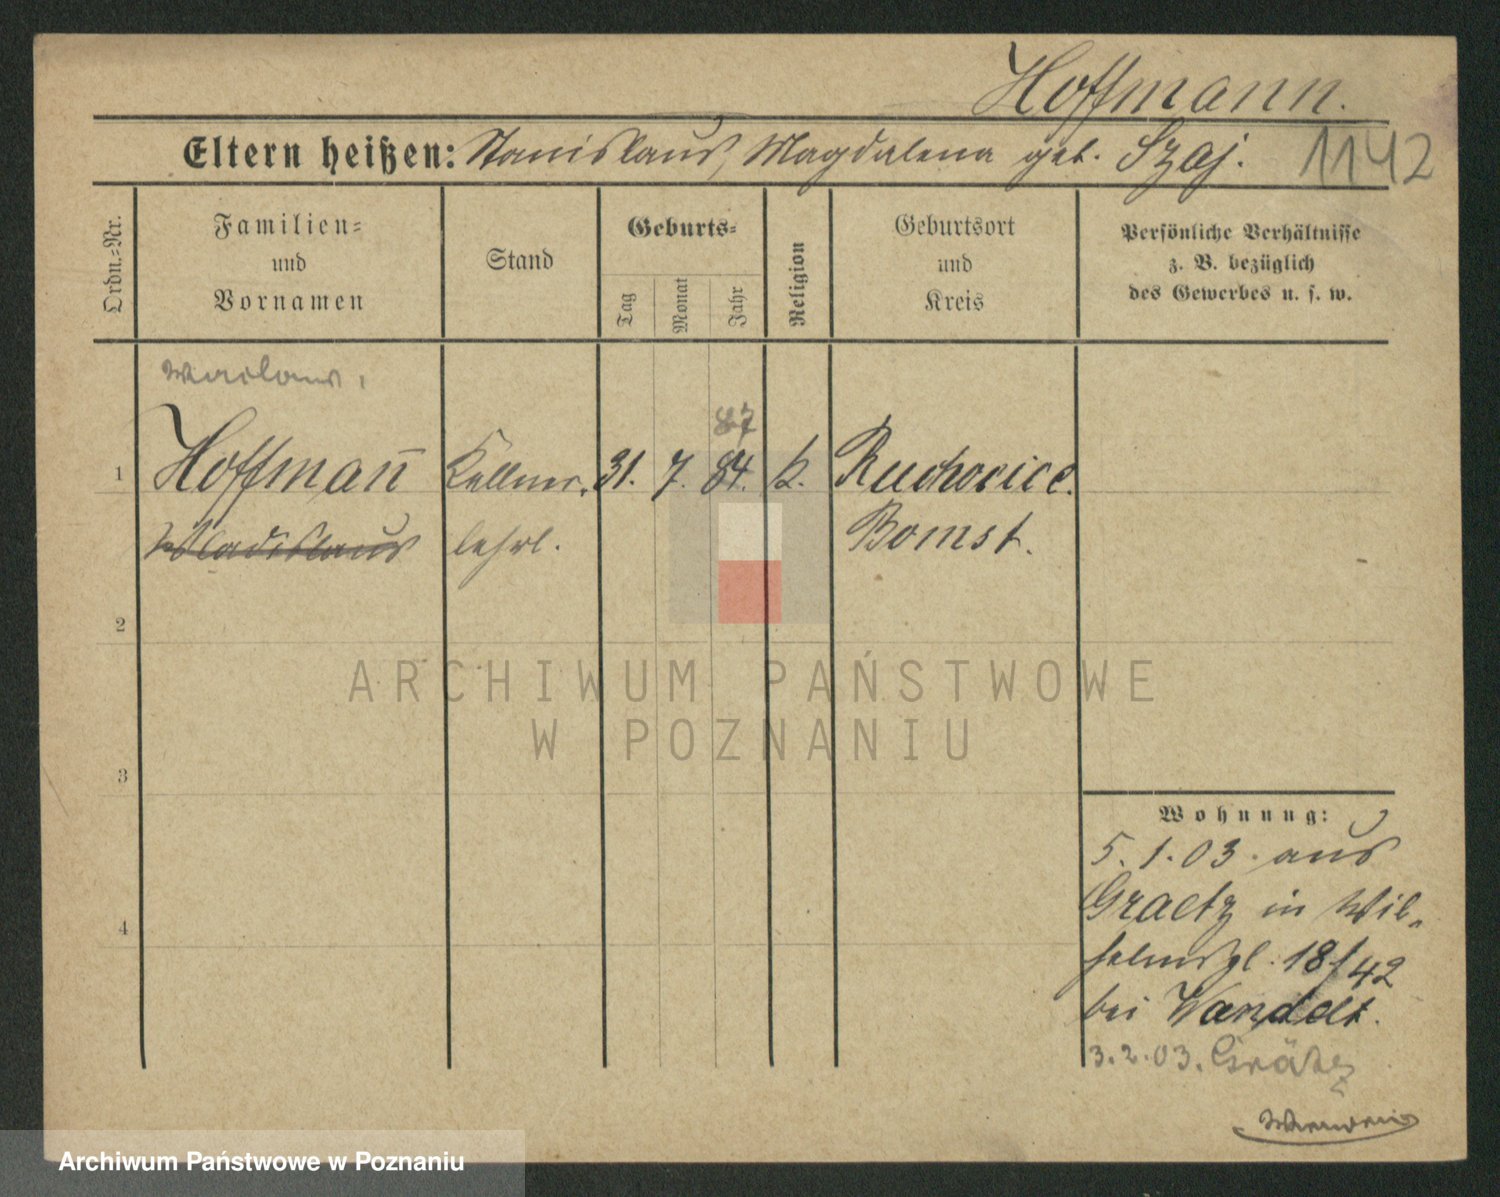 Hoffmann.
Eltern heißen: Stanislaus, Magdalena geb. Szaj. 1142
Ordn.-Nr.
Familien-
und
Vornamen
Stand
Geburts-
Tag
Monat
Jahr
Religion
Geburtsort
und
Kreis
Persönliche Verhältnisse
z. B. bezüglich
des Gewerbes u. s. w.
Waclaus,
87
1 Hoffmañ Kellner. 31. 7. 84. k. Ruchocice.
Wladislaus lehrl. Bomst.
2
3
4
Wohnung:
5.1.03. aus
Graetz in Wil-
helmspl. 18/42
bei Wandelt.
3.2.03. Grätz
ARCHIWUM PAŃSTWOWE
W POZNANIU
Archiwum Państwowe w Poznaniu